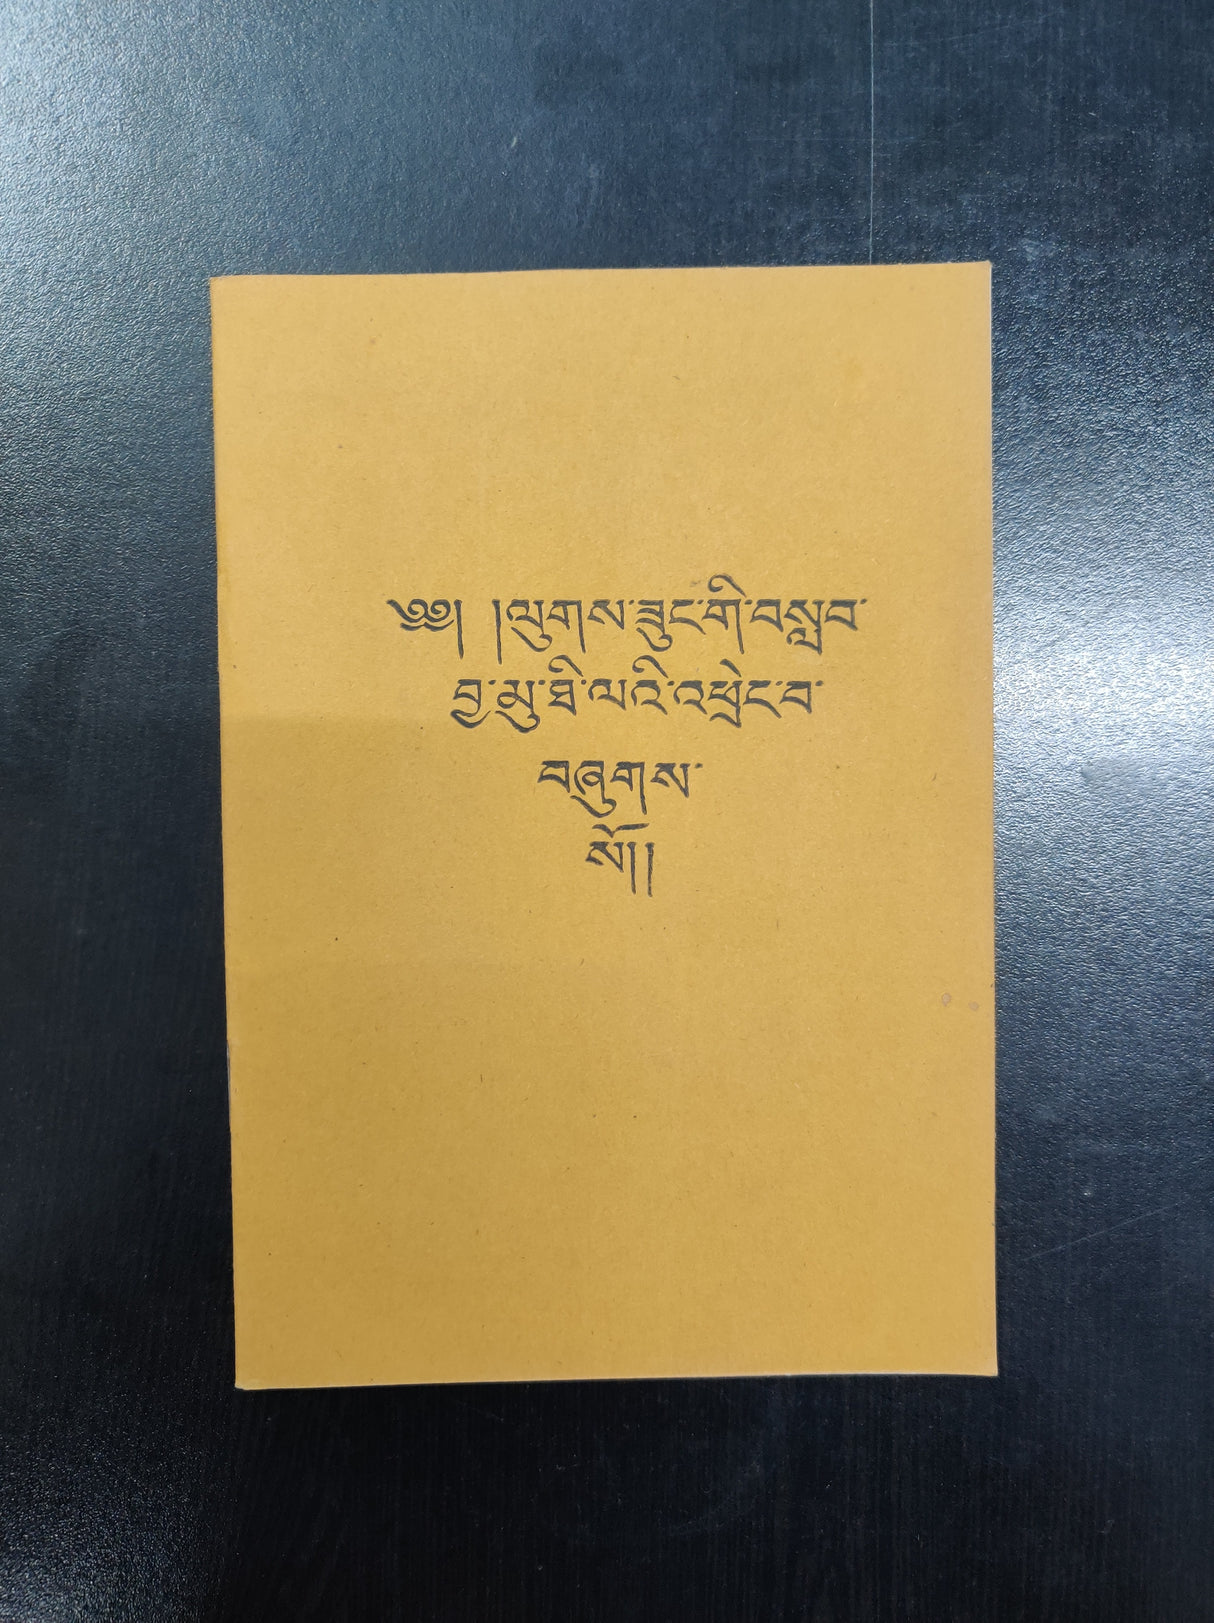 ༄༅། །ལུགས་ཟུང་གི་བསླབ་
བྱ་མུ་ཐི་ལའི་འཕྲེང་བ་
བཞུགས་
སོ།།